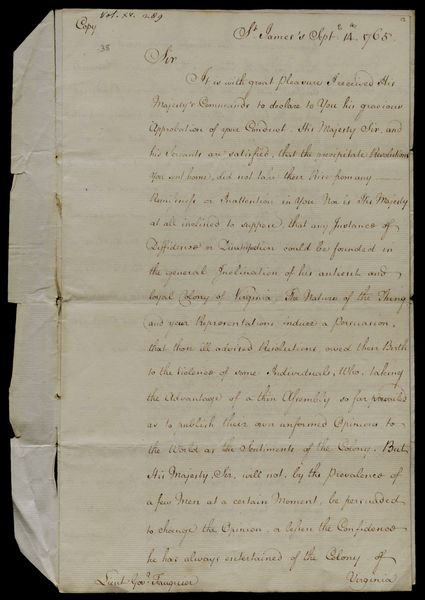 Vol. xv. 289
Copy
38
St James's Septr 14th 1765.
Sir
It is with great Pleasure I received His
Majesty's Commands to declare to You his gracious
Approbation of your Conduct. His Majesty Sir, and
his Servants are satisfied, that the precipitate Resolutions
You sent home, did not take their Rise from any
Remissness or Inattention in You Nor is His Majesty
at all inclined to suppose, that any Instance of
Diffidence or Dissatisfaction could be founded in
the general Inclination of his antient and
loyal Colony of Virginia. The Nature of the Thing
and your Representations induce a Persuasion,
that those ill advised Resolutions owed their Birth
to the Violence of some Individuals, Who, taking
the Advantage of a thin Assembly so far prevailed
as to publish their own unformed Opinions to
the World as the Sentiments of the Colony. But
His Majesty, Sir, will not, by the Prevalence of
a few Men at a certain Moment, be persuaded
to change the Opinion, or lessen the Confidence
he has always entertained of the Colony of
Lieut Govr. Fauquier Virginia